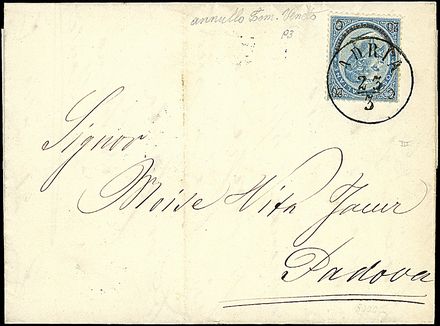 annullo Lom. Veneto
P3
ADRIA
23
3
III
Signor
Moise Vita Jacur
Padova